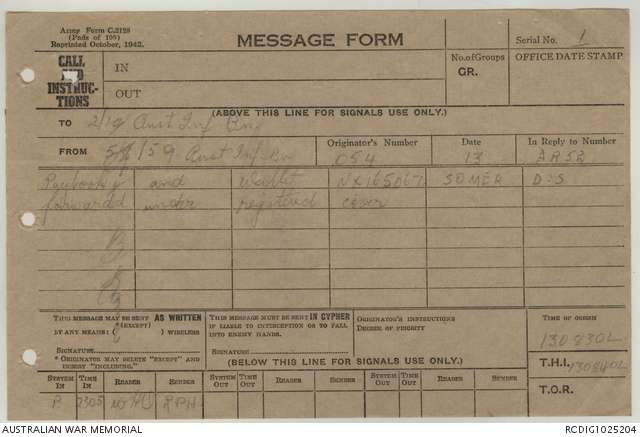 Army Form C.2128
(Pads of 100)
Reprinted October, 1942.
MESSAGE FORM
Serial No. 1
CALL AND INSTRUC-TIONS
IN
OUT
No. of Groups
GR.
OFFICE DATE STAMP
(ABOVE THIS LINE FOR SIGNALS USE ONLY.)
TO 2/19 Aust Inf Bn
FROM 58/59 Aust Inf Bn
Originator's Number 054
Date 13
In Reply to Number AR52
Paybook and NX165067 SOMER D:S
forwarded under registered cover
THIS MESSAGE MAY BE SENT AS WRITTEN
BY ANY MEANS. (EXCEPT) WIRELESS
SIGNATURE
* ORIGINATOR MAY DELETE "EXCEPT" AND INSERT "INCLUDING."
THIS MESSAGE MUST BE SENT IN CYPHER
IF LIABLE TO INTERCEPTION OR TO FALL INTO ENEMY HANDS.
SIGNATURE
ORIGINATOR'S INSTRUCTIONS
DEGREE OF PRIORITY
TIME OF ORIGIN
130830L
(BELOW THIS LINE FOR SIGNALS USE ONLY.)
T.H.I. 130840L
T.O.R.
SYSTEM IN TIME IN READER SENDER SYSTEM OUT TIME OUT READER SENDER SYSTEM OUT TIME OUT READER SENDER
P 2305
AUSTRALIAN WAR MEMORIAL
RCDIG1025204